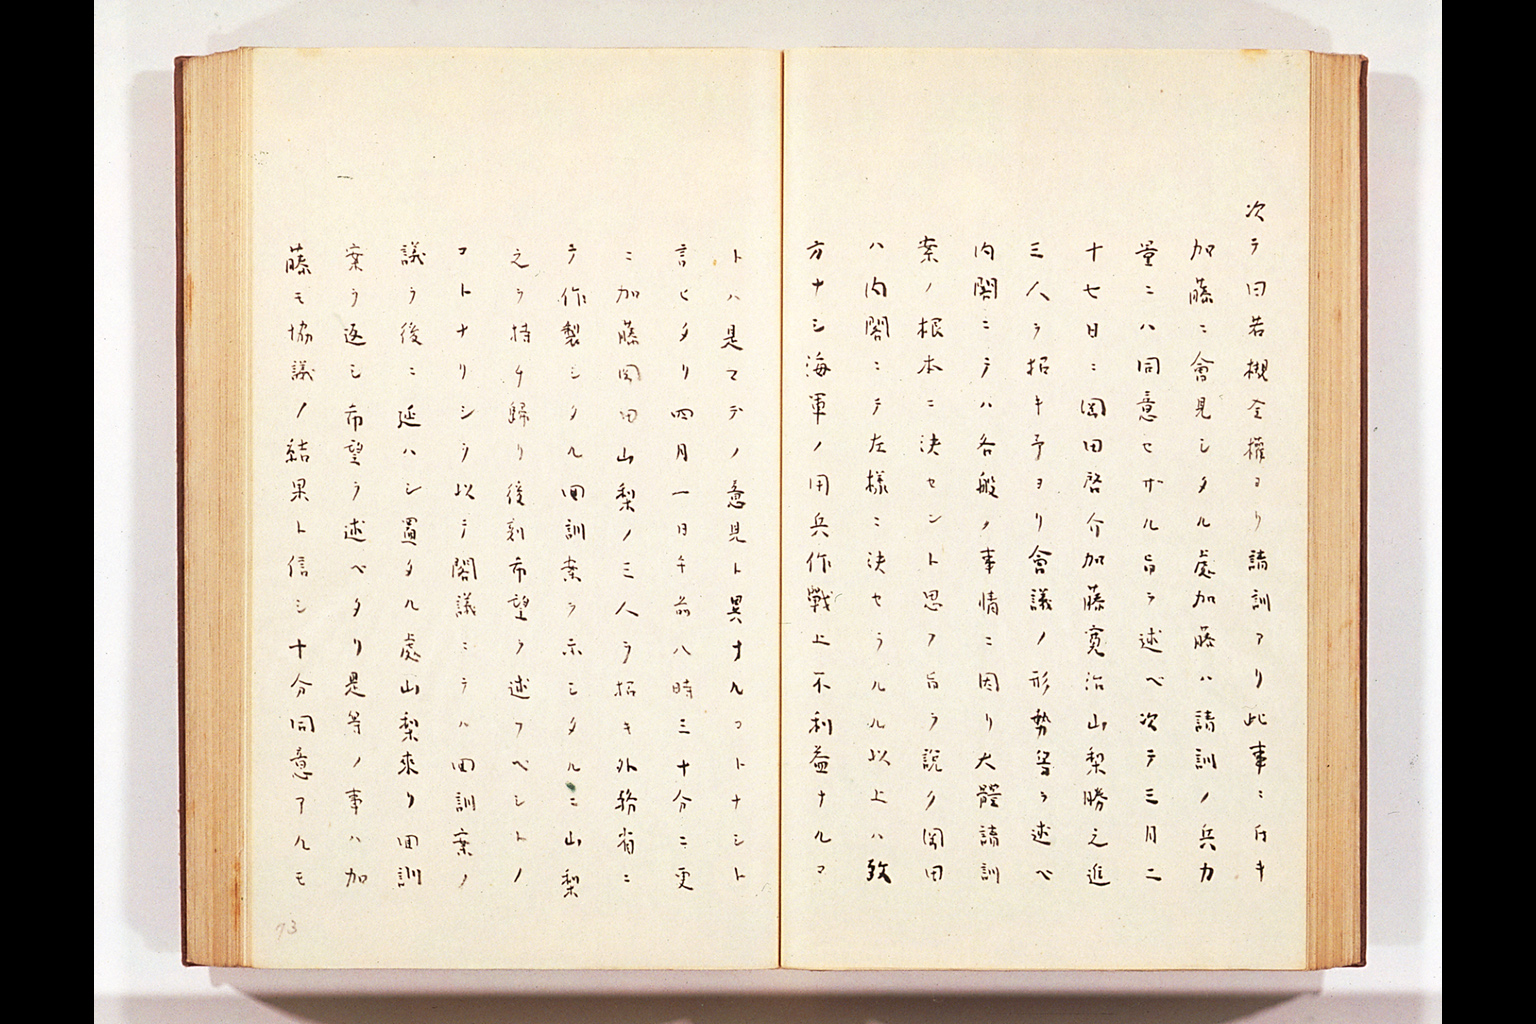 次テ曰若槻全權ヨリ請訓アリ此事ニ付キ
加藤ニ會見シタル處加藤ハ請訓ノ兵力
量ニハ同意セサル旨ヲ述ベ次テ三月二
十七日ニ岡田啓介加藤寛治山梨勝之進
三人ヲ招キ予ヨリ會議ノ形勢等ヲ述ベ
内閣ニテハ各般ノ事情ニ因リ大體請訓
案ノ根本ニ決セント思フ旨ヲ説ク岡田
ハ内閣ニテ左様ニ決セラルル以上ハ致
方ナシ海軍ノ用兵作戰上不利益ナルコ
トハ是マデノ意見ト異ナルコトナシト
言ヒタリ四月一日午前八時三十分ニ更
ニ加藤岡田山梨ノ三人ヲ招キ外務省ニ
テ作製シタル回訓案ヲ示シタルニ山梨
之ヲ持チ歸リ後刻希望ヲ述フベシトノ
コトナリシヲ以テ閣議ニテハ回訓案ノ
議ヲ後ニ延ハシ置タル處山梨來リ回訓
案ヲ返シ希望ヲ述ベタリ是等ノ事ハ加
藤モ協議ノ結果ト信シ十分同意アルモ
73